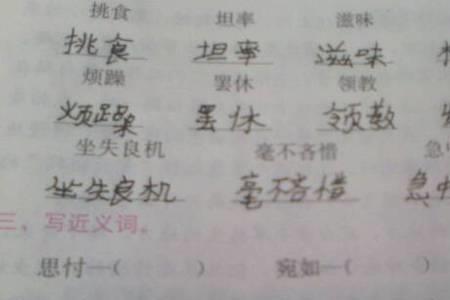 挑食 坦率 滋味
挑食 坦率 滋味
烦躁 罢休 领教
烦躁 罢休 领教
坐失良机 毫不吝惜 急中
坐失良机 毫不吝惜 急中
三、写近义词。
思忖—( ) 宛如—(